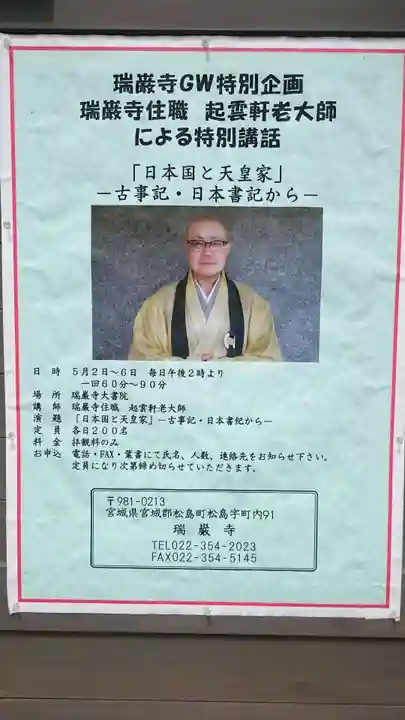 瑞巌寺GW特別企画
瑞巌寺住職 起雲軒老大師
による特別講話
「日本国と天皇家」
－古事記・日本書記から－
日 時 ５月２日～６日 毎日午後２時より
一回６０分～９０分
場 所 瑞巌寺大書院
講 師 瑞巌寺住職 起雲軒老大師
演 題 「日本国と天皇家」－古事記・日本書紀から－
定 員 各日２００名
料 金 拝観料のみ
お申込 電話・FAX・葉書にて氏名、人数、連絡先をお知らせ下さい。
定員になり次第締め切らせていただきます。
〒981-0213
宮城県宮城郡松島町松島字町内91
瑞巌寺
TEL022-354-2023
FAX022-354-5145